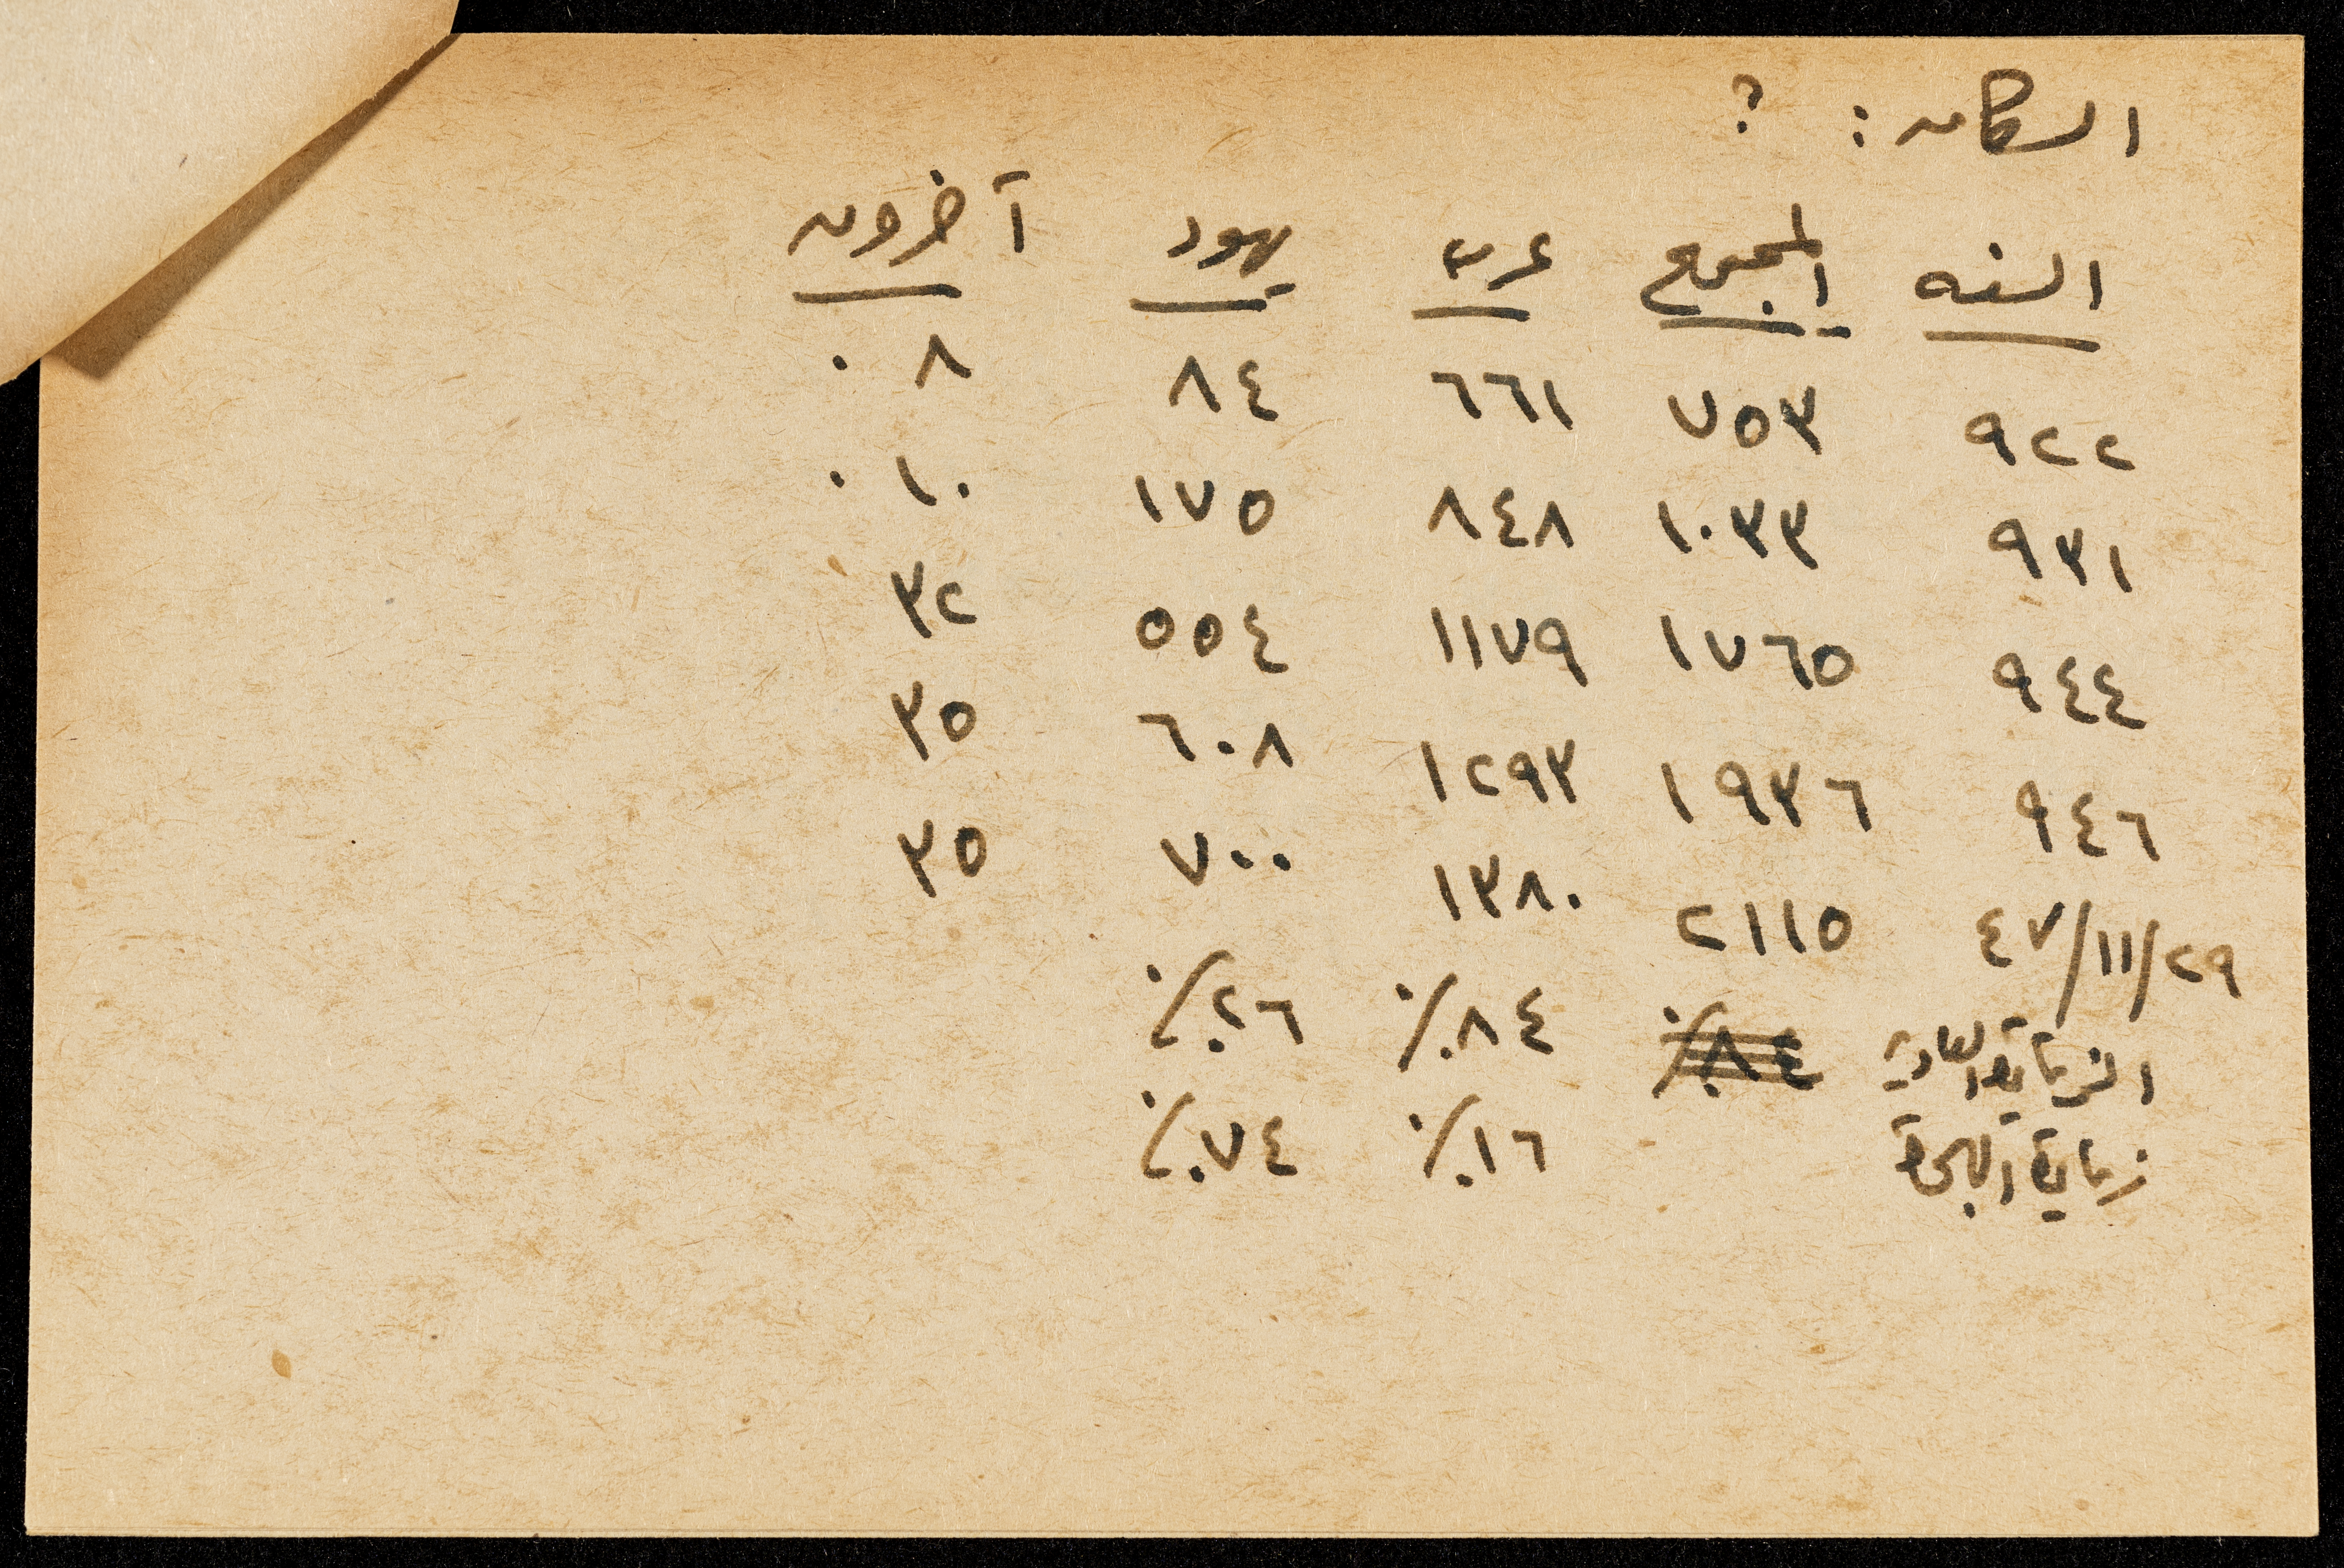 السكان : ؟
السنه المجموع عرب يهود آخرون
٩٢٢ ٧٥٣ ٦٦١ ٨٤ ٨
٩٣١ ١٠٣٣ ٨٤٨ ١٧٥ ١٠
٩٤٤ ١٧٦٥ ١١٧٩ ٥٥٤ ٣٢
٩٤٦ ١٩٣٦ ١٢٩٣ ٦٠٨ ٣٥
٤٧/١١/٢٩ ٢١١٥ ١٣٨٠ ٧٠٠ ٣٥
الزيادة العادية ٨٤٪ ٨٤٪ ٢٦٪
زيادة الهجرة ١٦٪ ٧٤٪